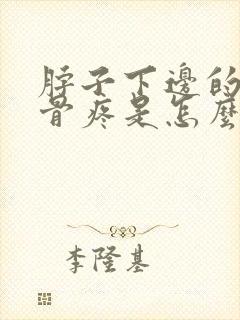 脖子下邊的
骨疼是怎麼
李隆基